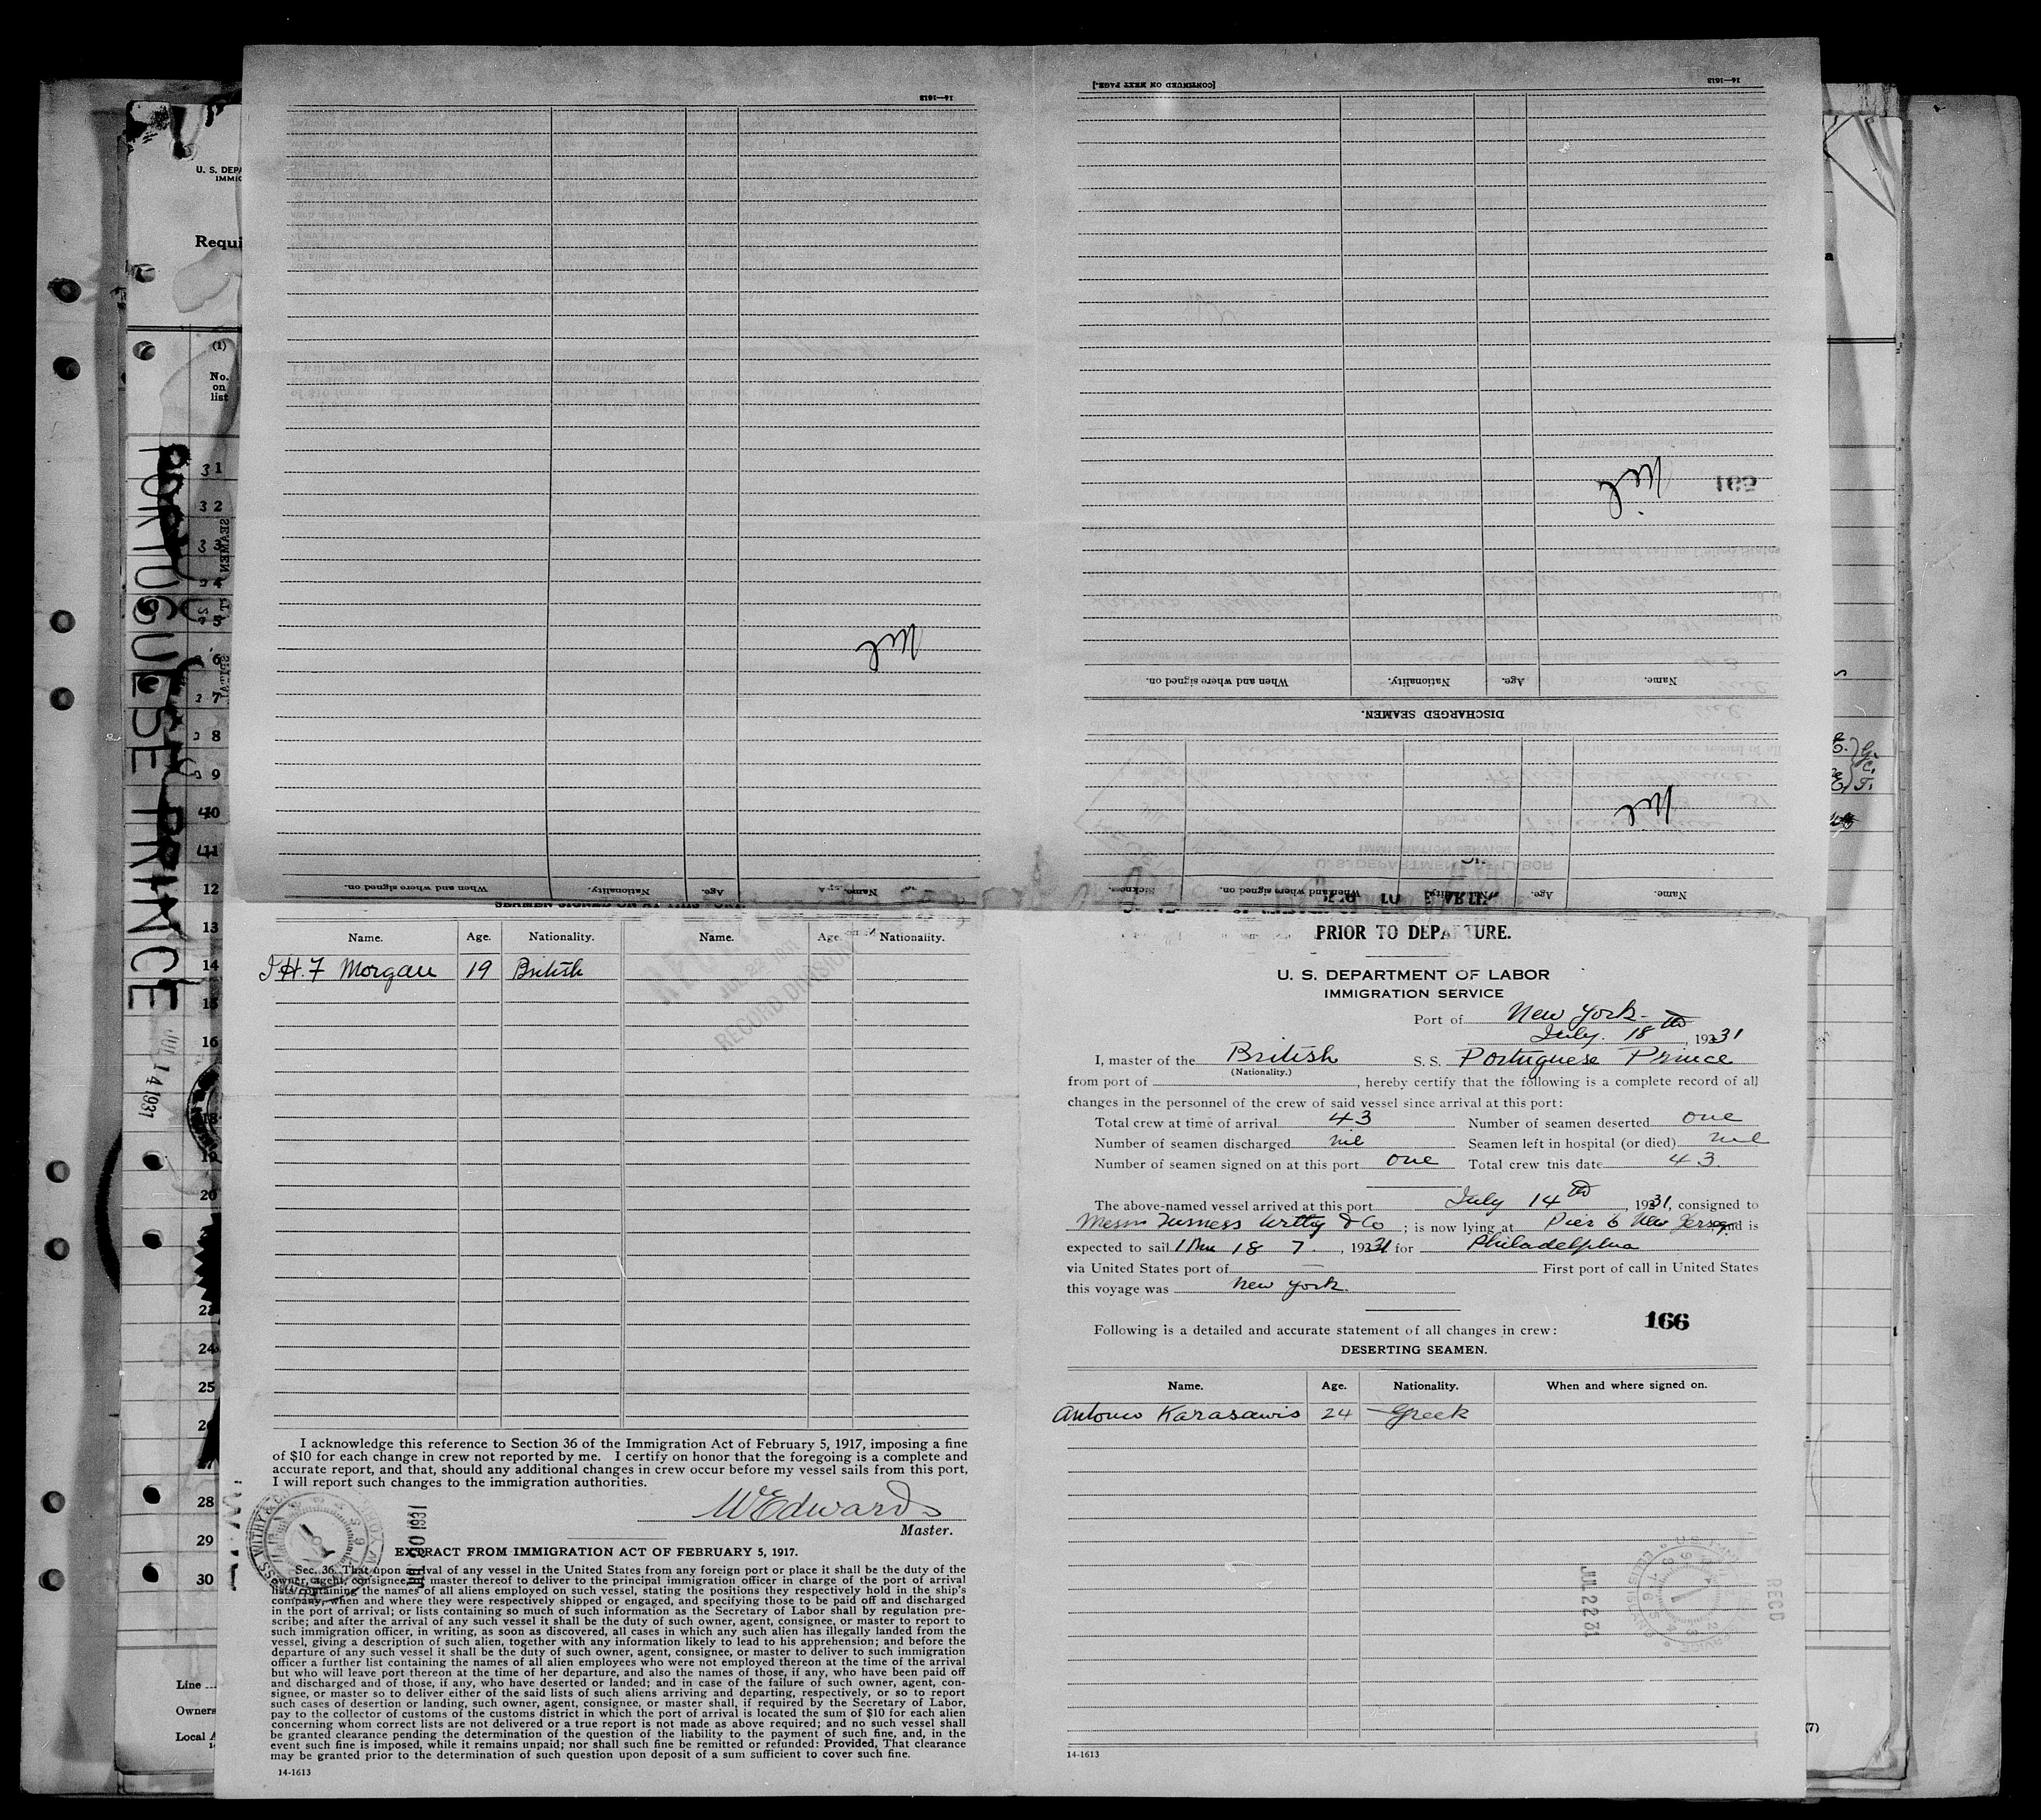 U. S. DEPA
IMMIG
Requi
(1)
No.
on
list
PORTUGUESE PRINCE
JUL 14 1931
31
32
33
8
9
40
41
12
13
14
15
16
18
19
20
23
24
25
28
29
30
Line
Owners
Local A
14—1613
When and where signed on.
Nationality.
Age.
Name.
Nil
[CONTINUED ON NEXT PAGE.]
14—1613
165
Nil
When and where signed on.
Nationality.
Age.
Name.
DISCHARGED SEAMEN.
Nil
Sickness.
When and where signed on.
Nationality.
Age.
Name.
SEAMEN SIGNED ON AT THIS PORT
Name. Age. Nationality. Name. Age. Nationality.
J H. F Morgan 19 British
JUL 22 1931
RECORD DIVISION
I acknowledge this reference to Section 36 of the Immigration Act of February 5, 1917, imposing a fine
of $10 for each change in crew not reported by me. I certify on honor that the foregoing is a complete and
accurate report, and that, should any additional changes in crew occur before my vessel sails from this port,
I will report such changes to the immigration authorities.
W Edwards
Master.
EXTRACT FROM IMMIGRATION ACT OF FEBRUARY 5, 1917.
Sec. 36. That upon arrival of any vessel in the United States from any foreign port or place it shall be the duty of the
owner, agent, consignee, or master thereof to deliver to the principal immigration officer in charge of the port of arrival
lists containing the names of all aliens employed on such vessel, stating the positions they respectively hold in the ship's
company, when and where they were respectively shipped or engaged, and specifying those to be paid off and discharged
in the port of arrival; or lists containing so much of such information as the Secretary of Labor shall by regulation pre-
scribe; and after the arrival of any such vessel it shall be the duty of such owner, agent, consignee, or master to report to
such immigration officer, in writing, as soon as discovered, all cases in which any such alien has illegally landed from the
vessel, giving a description of such alien, together with any information likely to lead to his apprehension; and before the
departure of any such vessel it shall be the duty of such owner, agent, consignee, or master to deliver to such immigration
officer a further list containing the names of all alien employees who were not employed thereon at the time of the arrival
but who will leave port thereon at the time of her departure, and also the names of those, if any, who have been paid off
and discharged and of those, if any, who have deserted or landed; and in case of the failure of such owner, agent, con-
signee, or master so to deliver either of the said lists of such aliens arriving and departing, respectively, or so to report
such cases of desertion or landing, such owner, agent, consignee, or master shall, if required by the Secretary of Labor,
pay to the collector of customs of the customs district in which the port of arrival is located the sum of $10 for each alien
concerning whom correct lists are not delivered or a true report is not made as above required; and no such vessel shall
be granted clearance pending the determination of the question of the liability to the payment of such fine, and, in the
event such fine is imposed, while it remains unpaid; nor shall such fine be remitted or refunded: Provided, That clearance
may be granted prior to the determination of such question upon deposit of a sum sufficient to cover such fine.
14-1613
PRIOR TO DEPARTURE.
U. S. DEPARTMENT OF LABOR
IMMIGRATION SERVICE
Port of New York
July. 18th, 1931
I, master of the British S. S. Portuguese Prince
(Nationality.)
from port of , hereby certify that the following is a complete record of all
changes in the personnel of the crew of said vessel since arrival at this port:
Total crew at time of arrival 43 Number of seamen deserted one
Number of seamen discharged nil Seamen left in hospital (or died) nil
Number of seamen signed on at this port one Total crew this date 43.
The above-named vessel arrived at this port July 14th, 1931, consigned to
Messrs Furness Withy & Co ; is now lying at Pier 6 New Jersey and is
expected to sail 18 7 , 1931 for Philadelphia
via United States port of — First port of call in United States
this voyage was New York.
166
Following is a detailed and accurate statement of all changes in crew:
DESERTING SEAMEN.
Name. Age. Nationality. When and where signed on.
Antonio Karasawis 24 Greek
JUL 22 31
RECD
14-1613
(7)